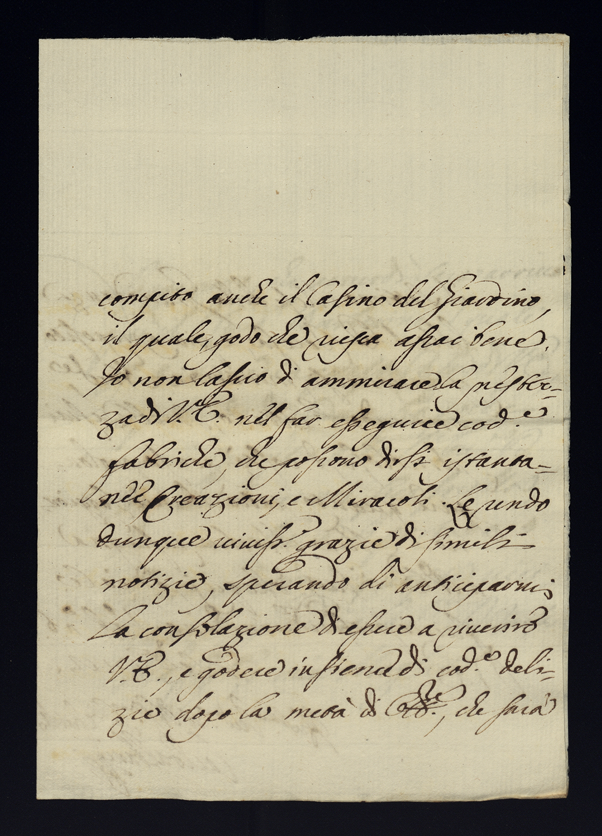 compito anche il Casino del Giardino,
il quale, godo che riesca assai bene.
Io non lascio di ammirare la
za di V. E. nel far esseguire cod.e
fabriche, che possono dirsi istanta-
nèe Creazioni, e Miracoli. Le rendo
dunque viviss.e grazie di simili
notizie, sperando di anticiparmi
la consolazione di essere a riverire
V. E., e godere insieme di cod.e deli-
zie dopo la metà di che sarà